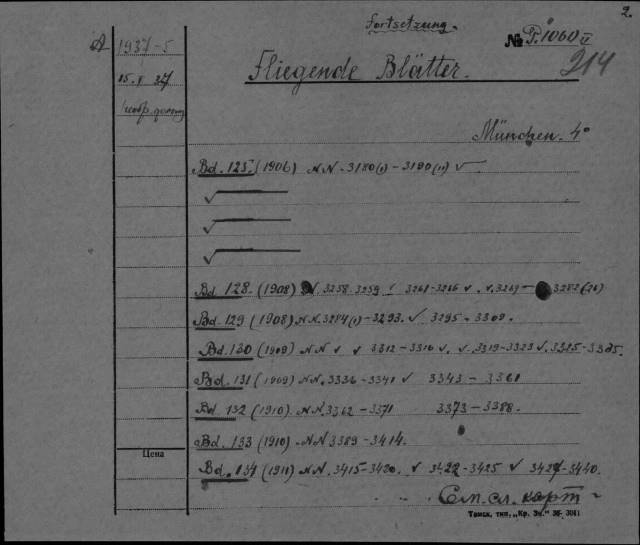 2.
Fortsetzung.
№ P.1060 IV
214
A 1937-5
15.V 37
Fliegende Blätter.
München. 4°
Bd. 125. (1906) NN. 3180(1) - 3190(11) √
√
√
√
Bd. 128. (1908) N. 3258-3259 √ 3261-3266 √ √ 3269 - 3282(26)
Bd. 129 (1908) NN. 3284(1) - 3293. √ 3295 - 3309.
Bd. 130 (1909) NN √ √ 3312 - 3316 √. √. 3319-3323 √. 3325-3335.
Bd. 131 (1909) NN. 3336 - 3341 √ 3343 - 3361
Bd. 132 (1910). NN. 3362 - 3371 3373 - 3388.
Bd. 133 (1910) - NN 3389 - 3414.
Цена
Bd. 134 (1911) NN. 3415-3420. √ 3422 - 3425 √ 3427-3440.
См. сл. карт
Томск, тип. „Кр. Зн."